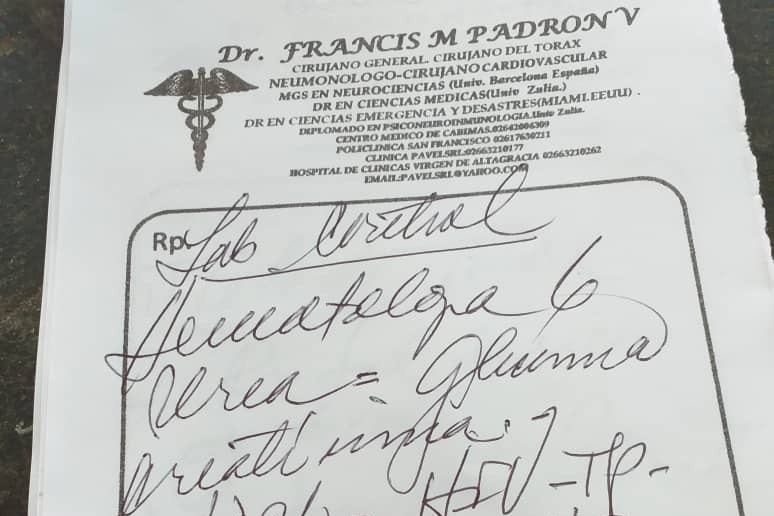 Dr. FRANCIS M PADRON V
CIRUJANO GENERAL. CIRUJANO DEL TORAX
NEUMONOLOGO-CIRUJANO CARDIOVASCULAR
MGS EN NEUROCIENCIAS (Univ. Barcelona España)
DR EN CIENCIAS MEDICAS(Univ Zulia.)
DR EN CIENCIAS EMERGENCIA Y DESASTRES(MIAMI.EEUU) .
DIPLOMADO EN PSICONEUROINMUNOLOGIA.Univ Zulia.
CENTRO MEDICO DE CABIMAS.02642006309
POLICLINICA SAN FRANCISCO 02617630211
CLINICA PAVELSRL:02663210177
HOSPITAL DE CLINICAS VIRGEN DE ALTAGRACIA 02663210262
EMAIL:PAVELSRL@YAHOO.COM
Rp Lab Control
Hematologia 6
Urea = Glicemia
Creatinina.
HIV - TP -